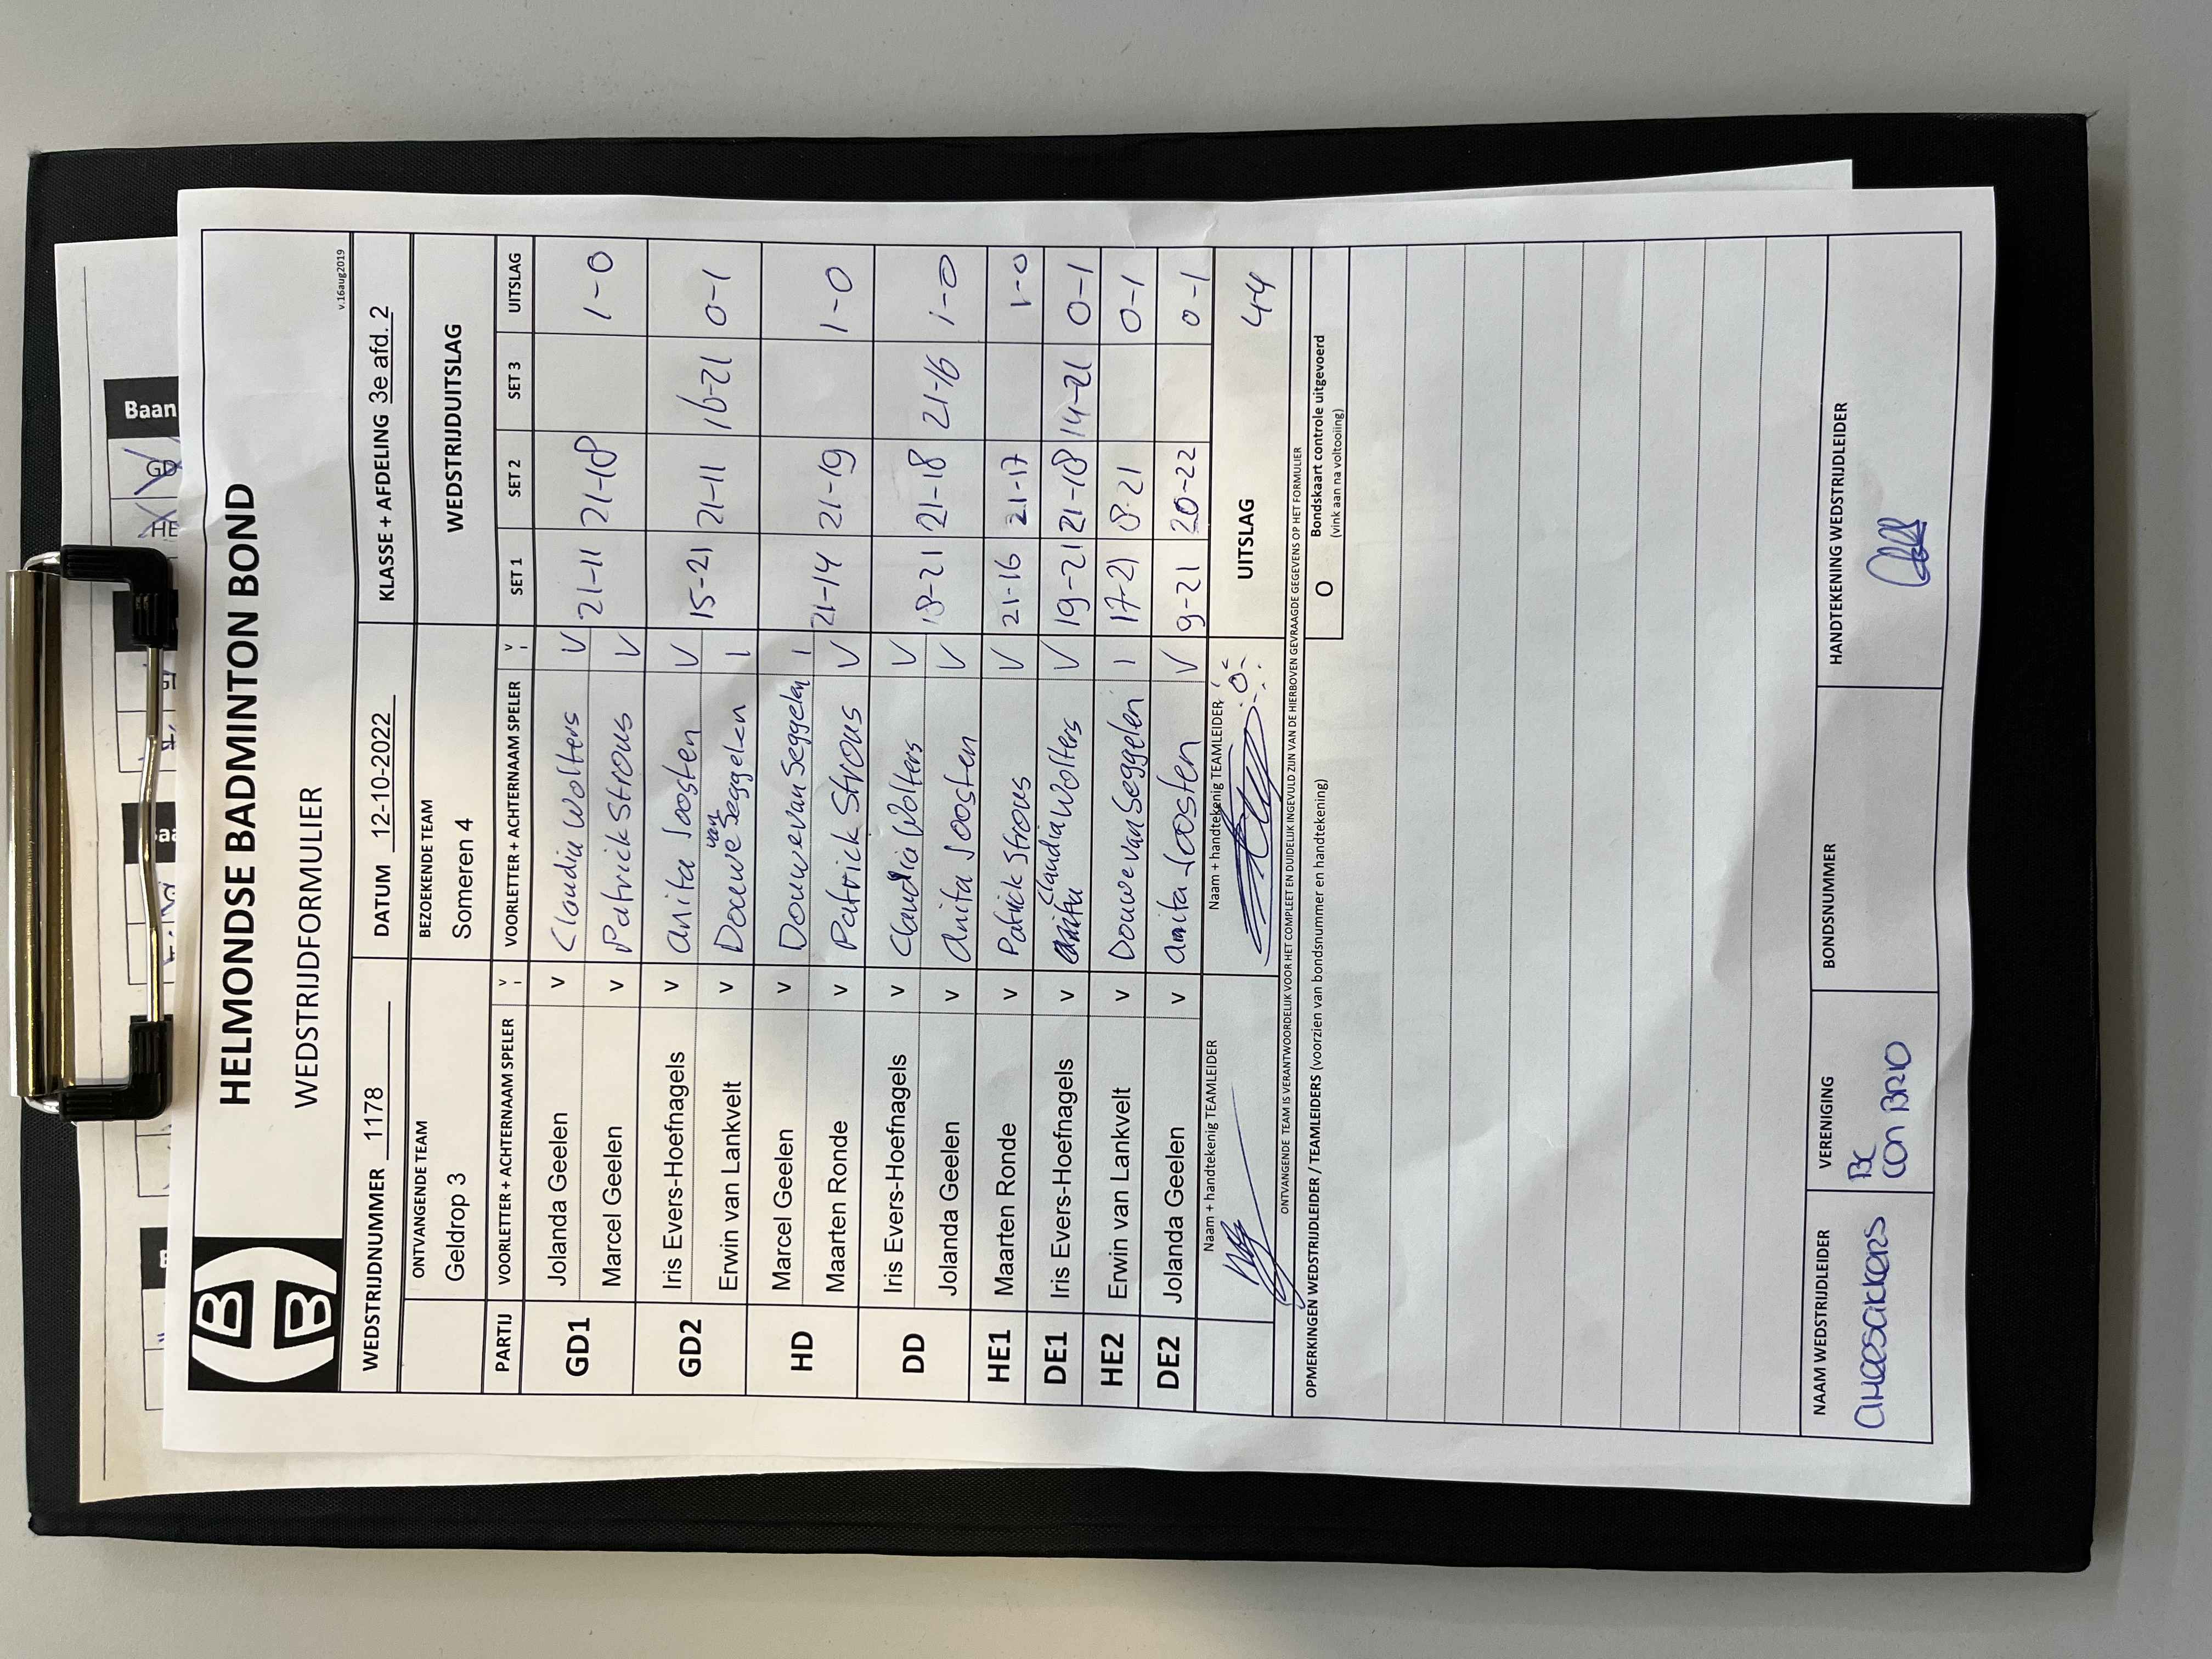 HELMONDSE BADMINTON BOND
WEDSTRIJDFORMULIER
v.16aug2019
WEDSTRIJDNUMMER 1178 DATUM 12-10-2022 KLASSE + AFDELING 3e afd. 2
ONTVANGENDE TEAM BEZOEKENDE TEAM WEDSTRIJDUITSLAG
Geldrop 3 Someren 4
PARTIJ VOORLETTER + ACHTERNAAM SPELER V I VOORLETTER + ACHTERNAAM SPELER V I SET 1 SET 2 SET 3 UITSLAG
GD1 Jolanda Geelen v Claudia Wolters V 21-11 21-18 1-0
Marcel Geelen v Patrick Strous V
GD2 Iris Evers-Hoefnagels v Anita Joosten V 15-21 21-11 16-21 0-1
Erwin van Lankvelt v Douwe van Seggelen I
HD Marcel Geelen v Douwe van Seggelen I 21-14 21-19 1-0
Maarten Ronde v Patrick Strous V
DD Iris Evers-Hoefnagels v Claudia Wolters V 18-21 21-18 21-16 1-0
Jolanda Geelen v Anita Joosten V
HE1 Maarten Ronde v Patrick Strous V 21-16 21-17 1-0
DE1 Iris Evers-Hoefnagels v Claudia Wolters V 19-21 21-18 14-21 0-1
HE2 Erwin van Lankvelt v Douwe van Seggelen I 17-21 8-21 0-1
DE2 Jolanda Geelen v Anita Joosten V 9-21 20-22 0-1
Naam + handtekenig TEAMLEIDER Naam + handtekenig TEAMLEIDER UITSLAG 4-4
ONTVANGENDE TEAM IS VERANTWOORDELIJK VOOR HET COMPLEET EN DUIDELIJK INGEVULD ZIJN VAN DE HIERBOVEN GEVRAAGDE GEGEVENS OP HET FORMULIER
OPMERKINGEN WEDSTRIJDLEIDER / TEAMLEIDERS (voorzien van bondsnummer en handtekening) O Bondskaart controle uitgevoerd
(vink aan na voltooiing)
NAAM WEDSTRIJDLEIDER VERENIGING BONDSNUMMER HANDTEKENING WEDSTRIJDLEIDER
BC
CON BRIO
Baan
GD
HE